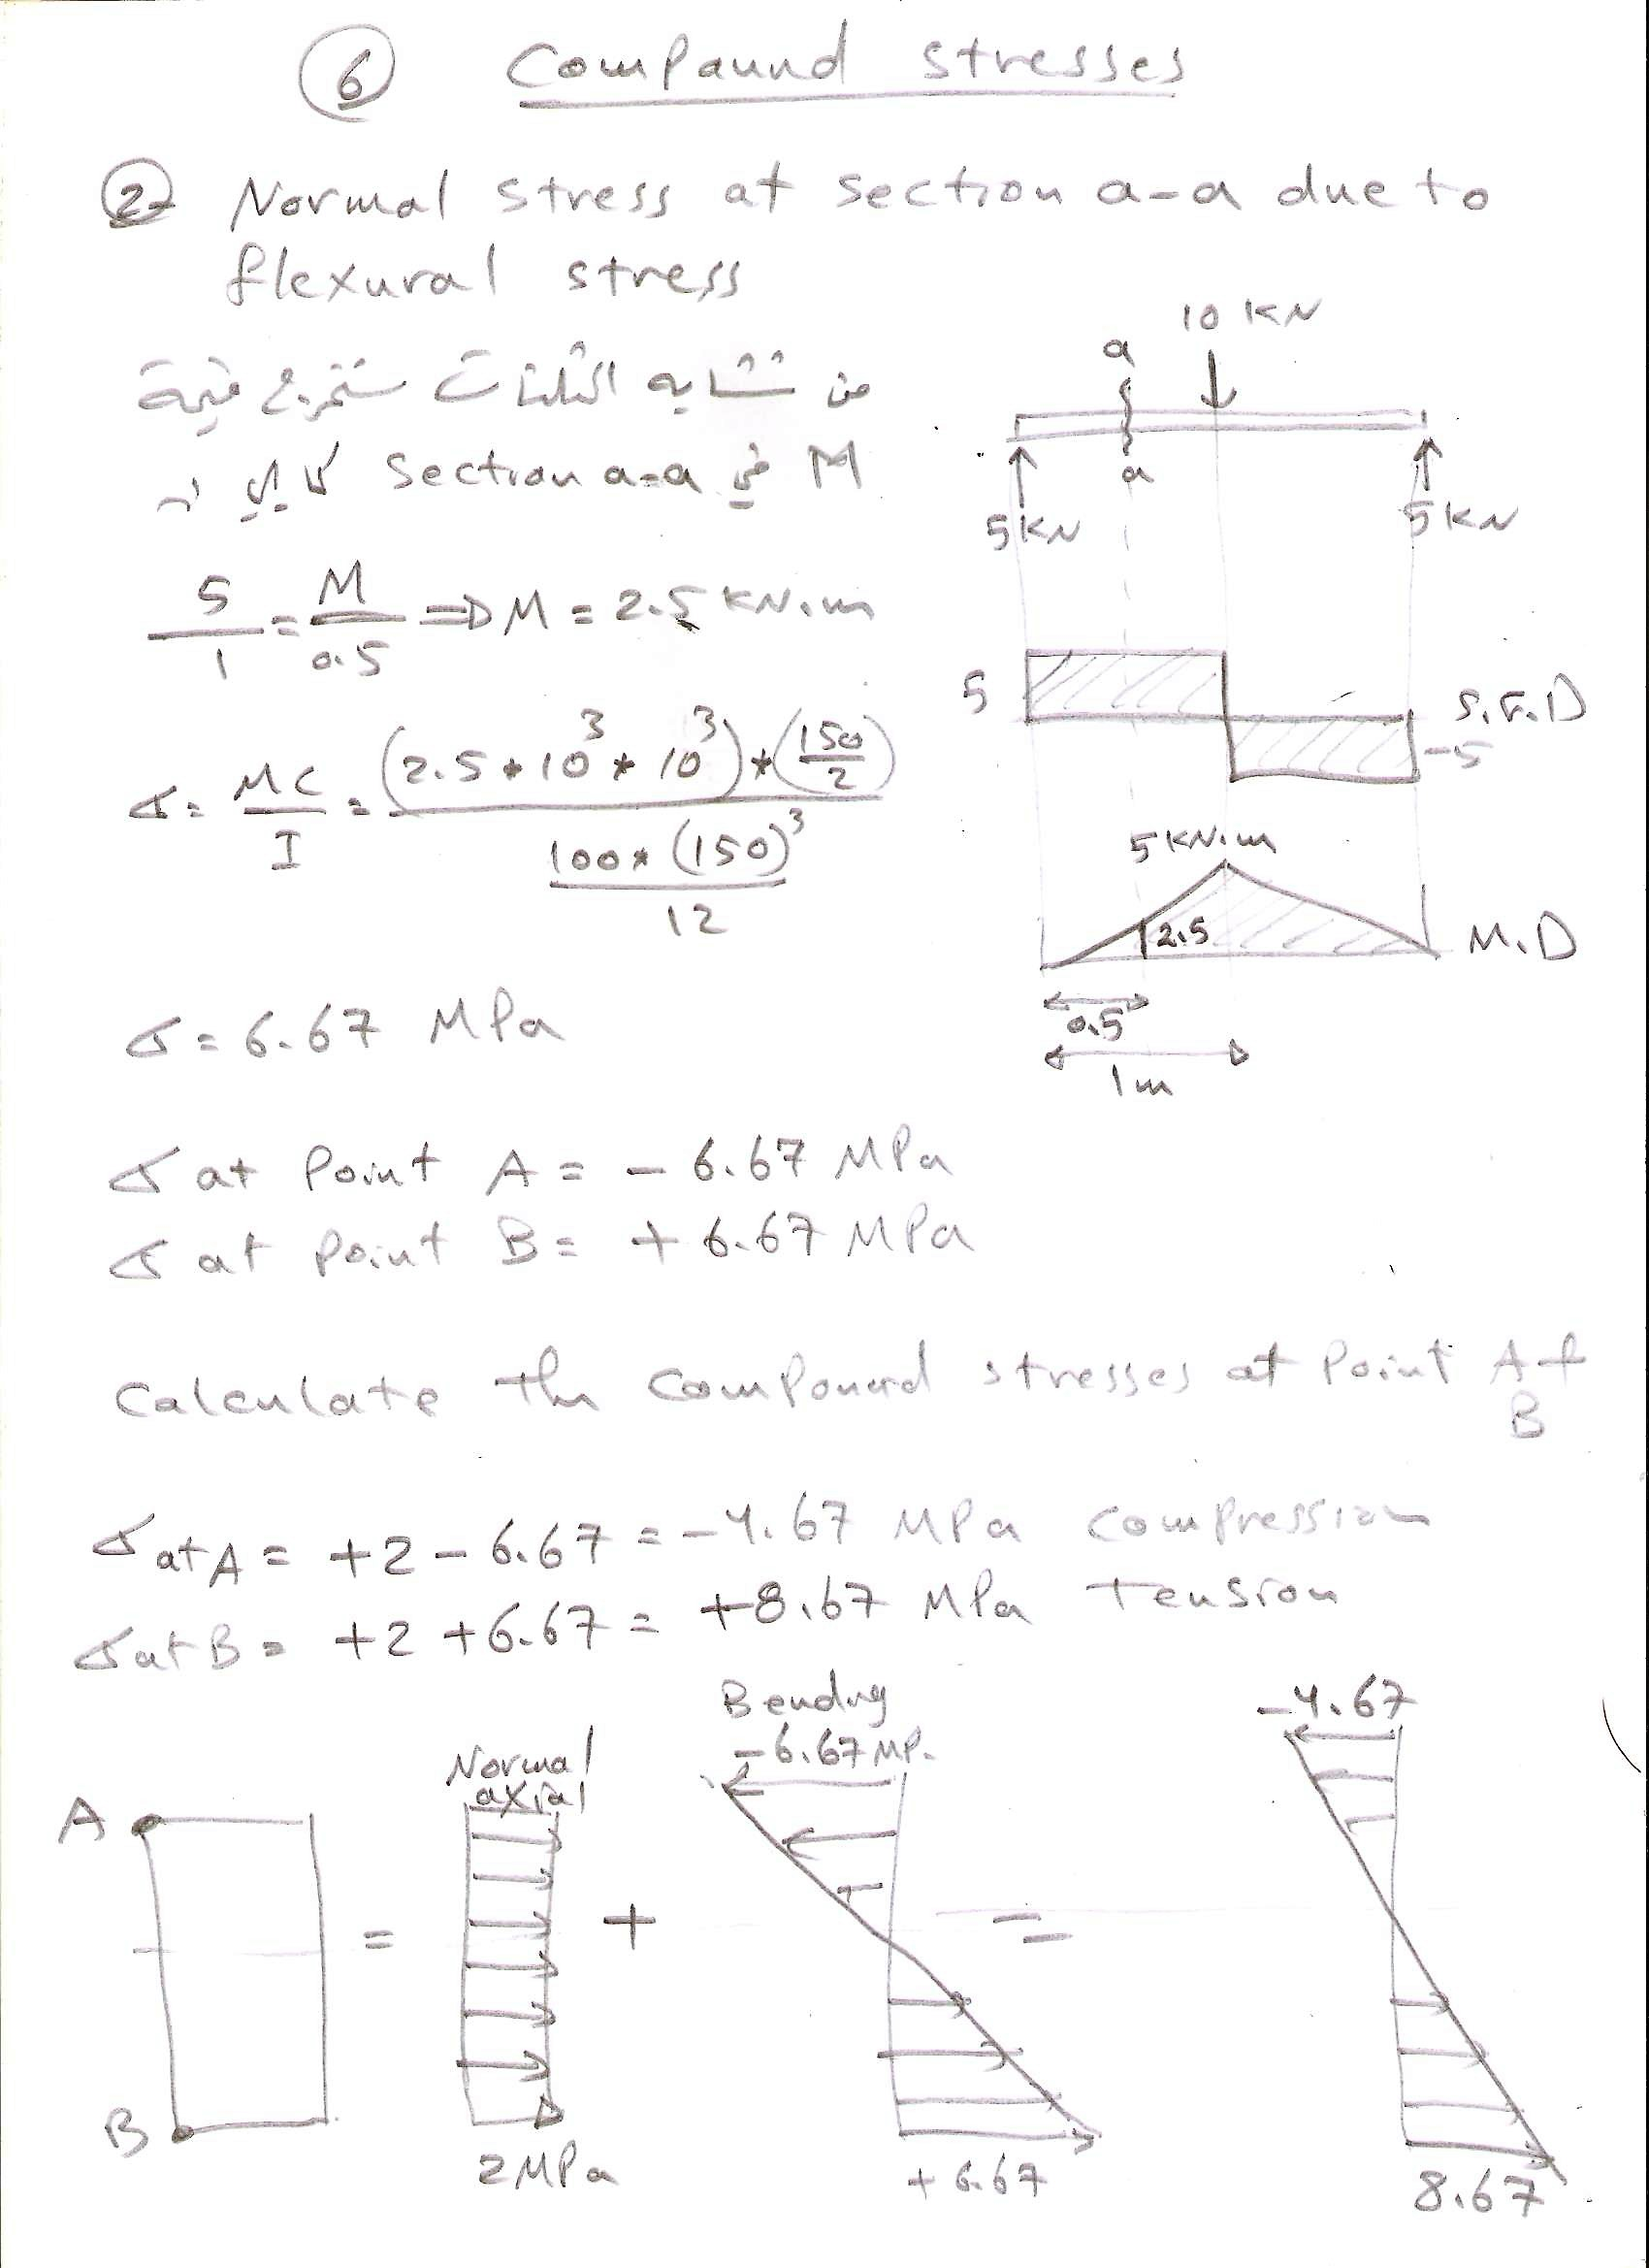 6 Compaund stresses
2- Normal stress at section a-a due to
flexural stress
من تشابه المثلثات نستخرج قيمة
M في section a-a كما يلي :-
5/1 = M/0.5 => M = 2.5 KN.m
σ = MC/I = (2.5*10^3*10^3)*(150/2) / (100*(150)^3/12)
σ = 6.67 MPa
10 KN
a
a
5KN
5KN
5
S.F.D
-5
5KN.m
2.5
M.D
0.5
1m
σ at Point A = - 6.67 MPa
σ at Point B = + 6.67 MPa
Calculate the Compound stresses at Point A &
B
σ at A = +2 - 6.67 = -4.67 MPa compression
σ at B = +2 + 6.67 = +8.67 MPa Tension
A
B
=
Normal
axial
2MPa
+
Bending
-6.67 MP.
+6.67
=
-4.67
8.67